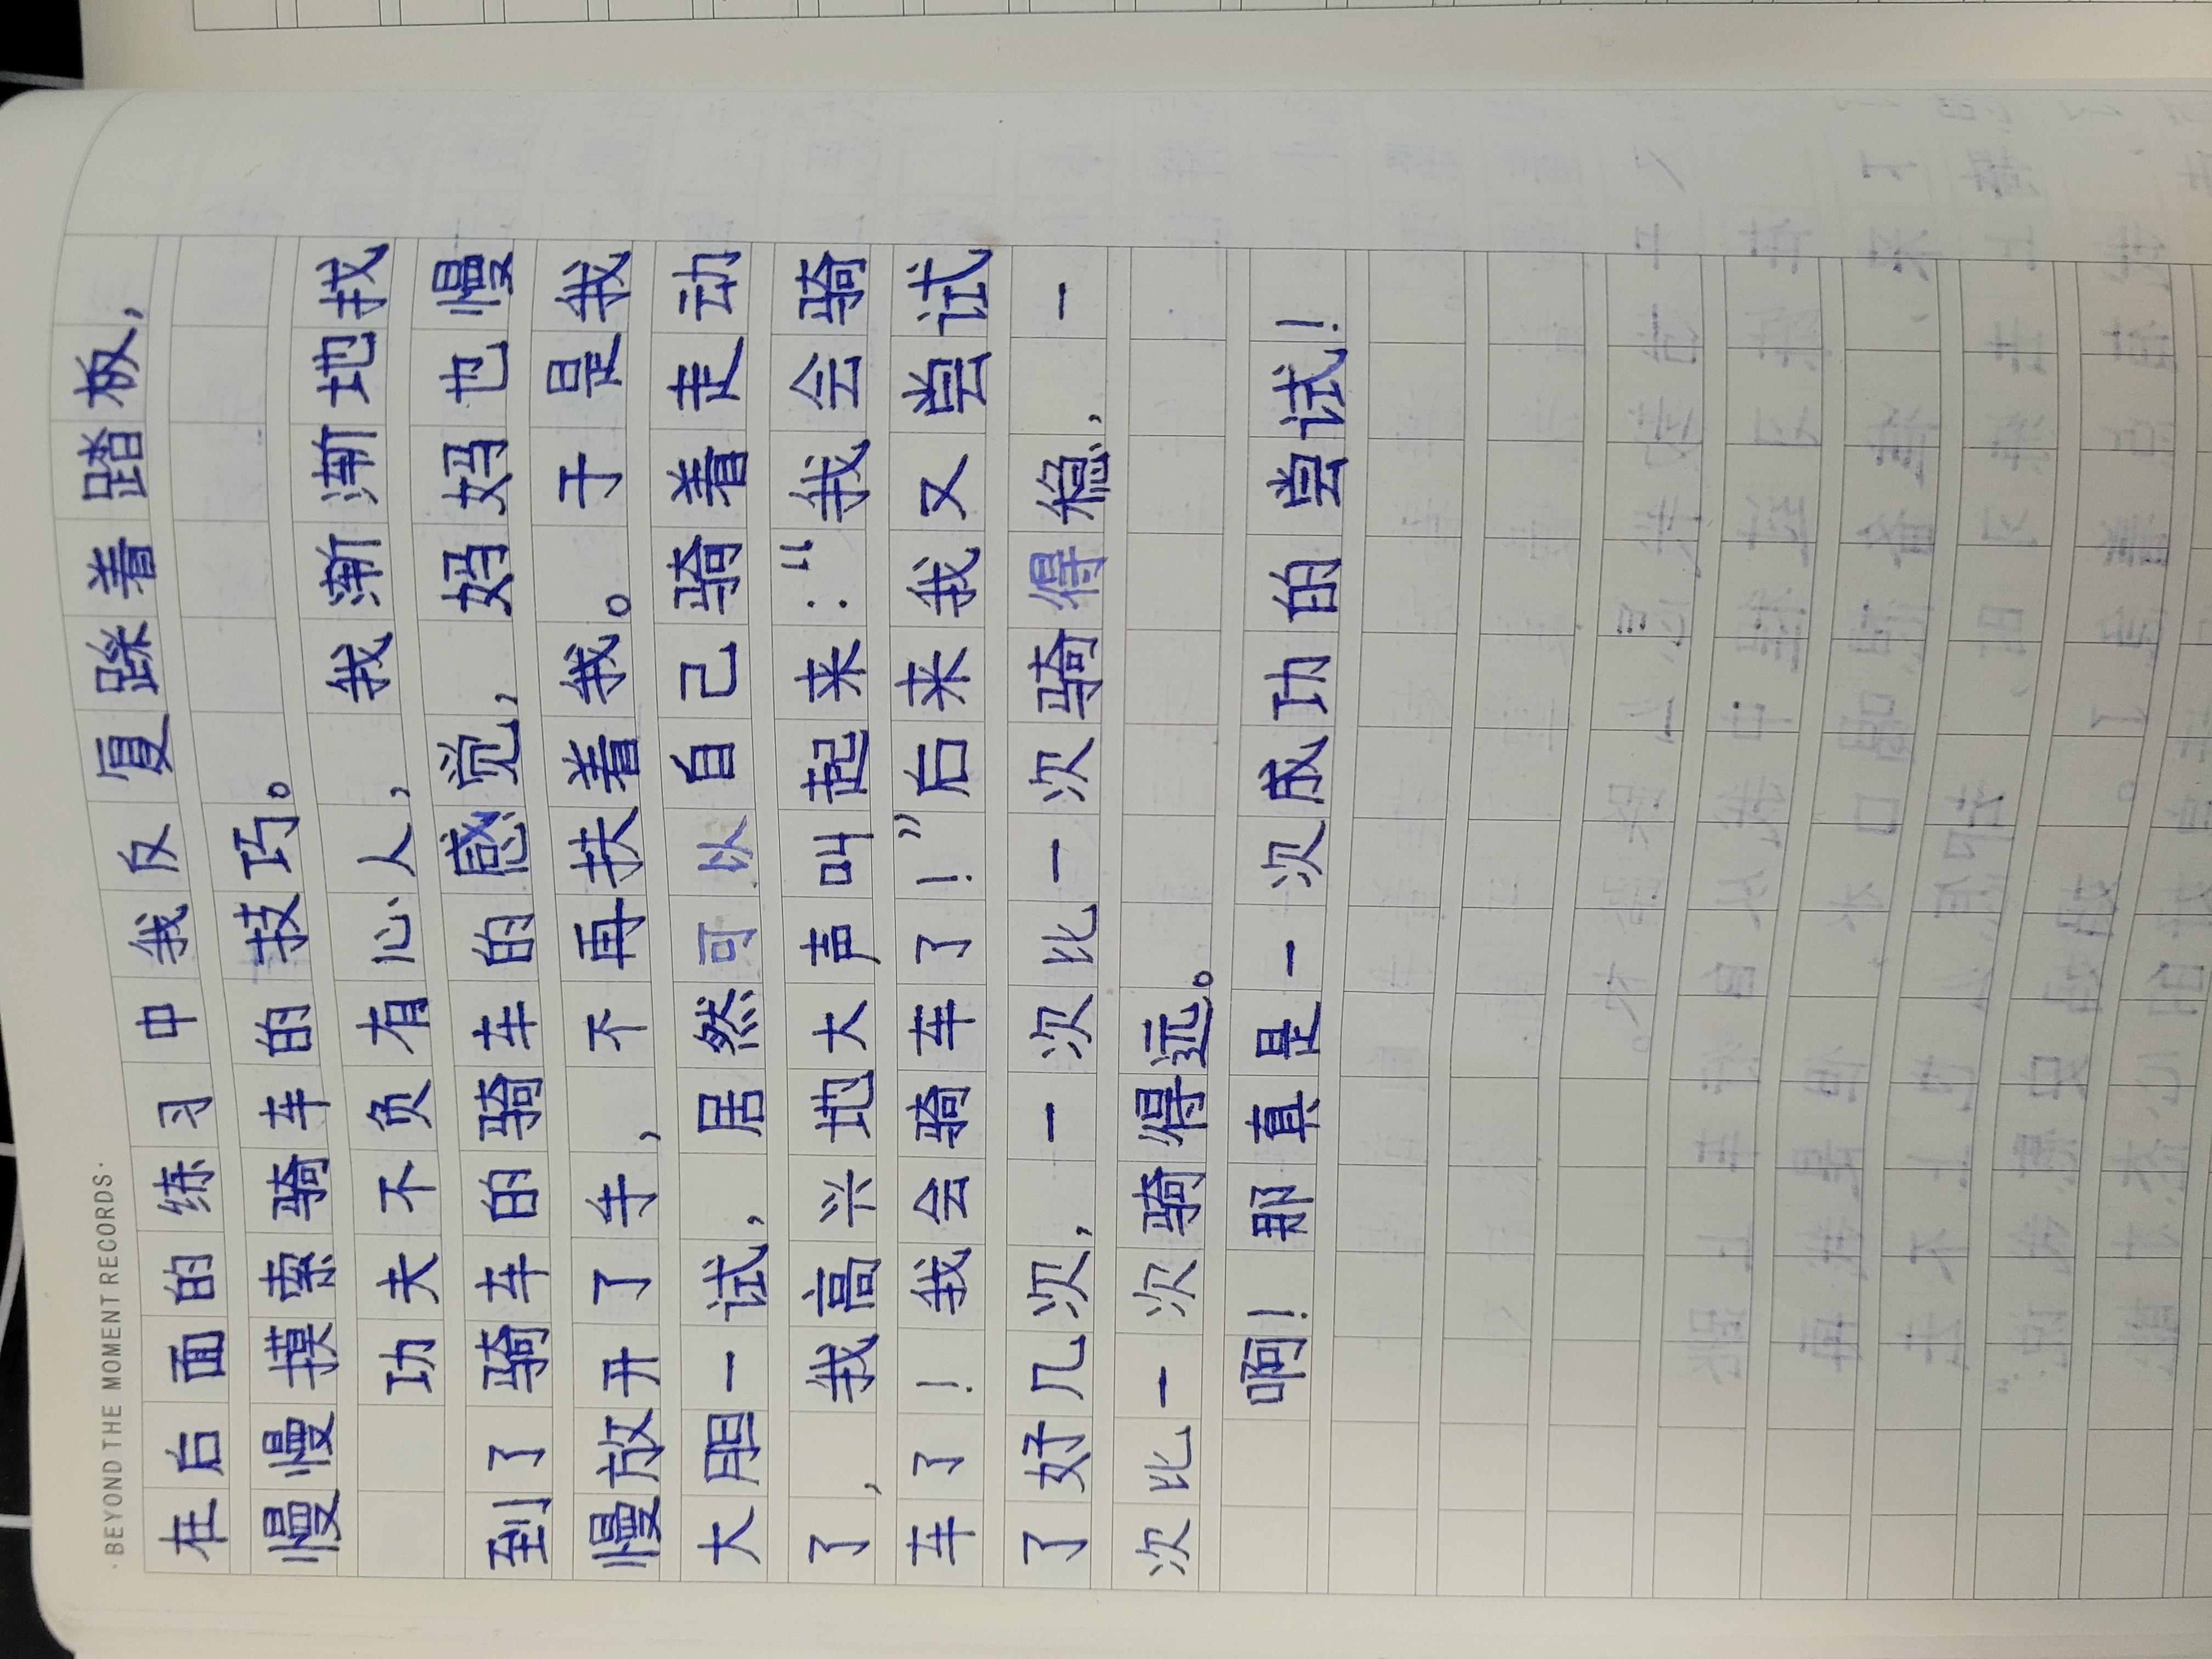 ·BEYOND THE MOMENT RECORDS·
在后面的练习中我反复踩着踏板，
慢慢摸索骑车的技巧。
功夫不负有心人，我渐渐地找
到了骑车的骑车的感觉，妈妈也慢
慢放开了手，不再扶着我。于是我
大胆一试，居然可以自己骑着走动
了，我高兴地大声叫起来：“我会骑
车了！我会骑车了！”后来我又尝试
了好几次，一次比一次骑得稳，一
次比一次骑得远。
啊！那真是一次成功的尝试！